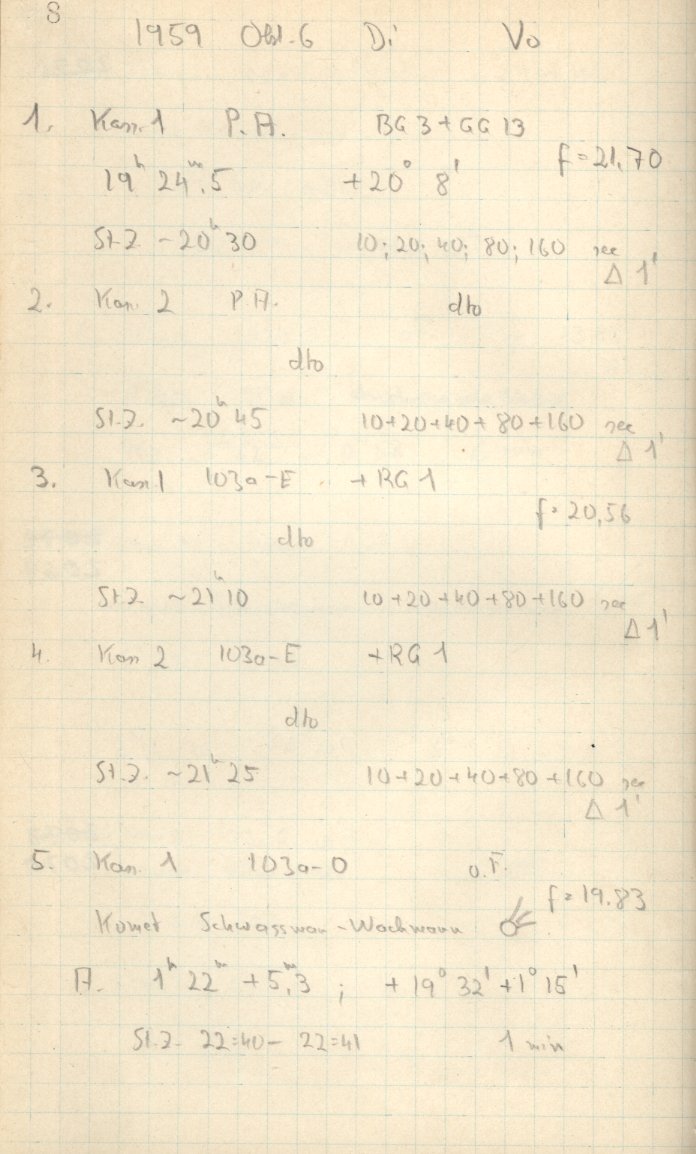 8
1959 Okt. 6 Di Vo
1. Kam. 1 P.A. BG 3 + GG 13
f = 21,70
19h 24m,5 +20° 8'
St.Z. ~20h 30 10; 20; 40; 80; 160 sec
Δ 1'
2. Kam. 2 P.A. dto
dto
St.Z. ~20h 45 10+20+40+80+160 sec
Δ 1'
3. Kam 1 103a-E + RG 1
f = 20,56
dto
St.Z. ~21h 10 10+20+40+80+160 sec
Δ 1'
4. Kam 2 103a-E + RG 1
dto
St.Z. ~21h 25 10+20+40+80+160 sec
Δ 1'
5. Kam. 1 103a-O o.F.
f = 19.83
Komet Schwassman-Wachmann
A. 1h 22m + 5m,3 ; + 19° 32' + 1° 15'
St.Z. 22:40 - 22:41 1 min